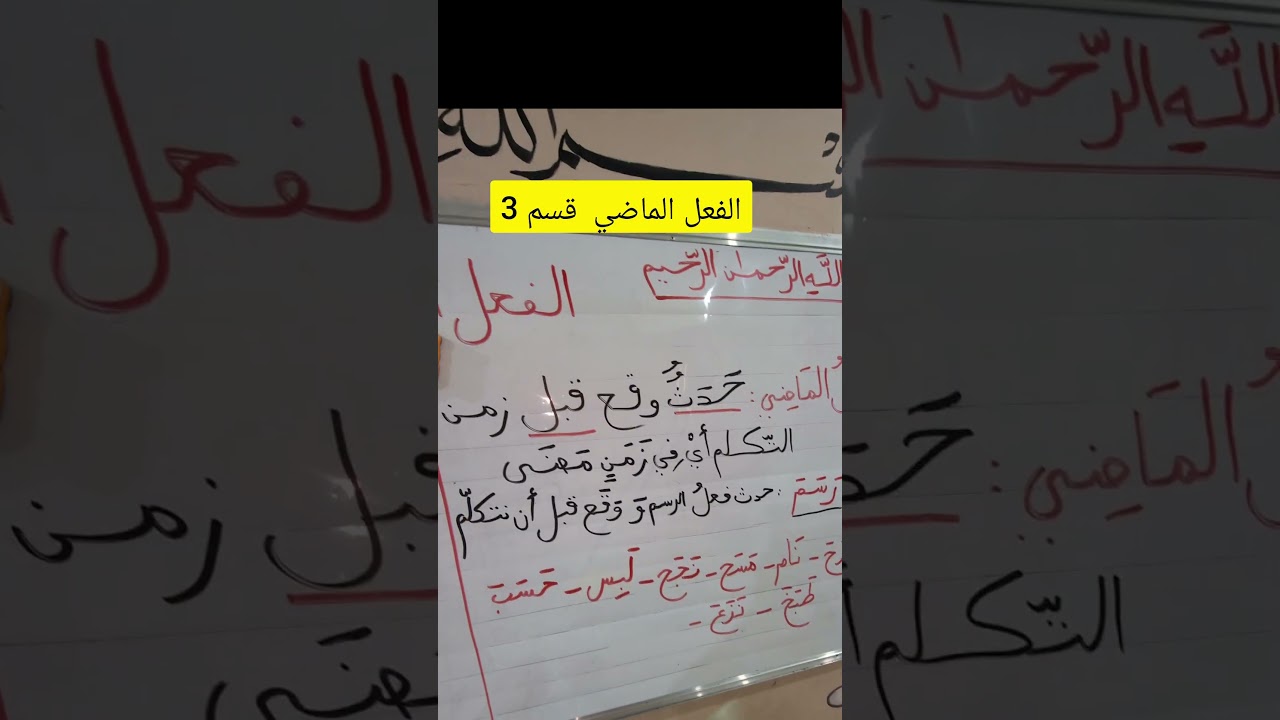 بسم الله
الفعل الماضي قسم 3
اللَّهِ الرَّحمـٰن الرَّحِيم
الفعل
المَاضِي: حَدَثُ وقع قبل زمن
التّكلم أيْ فِي زَمَنٍ مَضَى
رَسَمَ: حدث فعلُ الرسم وَ وَقَع قبل أن نتكلّم
نَام - مَسَح - نَجَحَ - لَبِس - حَسَبَ
طَبَخَ - نَزَعَ -